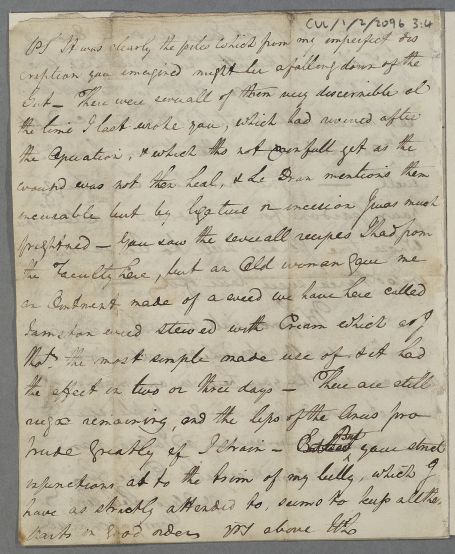 CUL/1/2/2096 3:4
PS It was clearly the piles which from my imperfect dis
cription you imagined might be a falling down of the
Gut – There were severall of them very discernible at
the time I last wrote you, which had remained after
the Operation, & which tho not painfull yet as the
wound was not then heal, & Le Dran mentions them
incurable but by ligature or incision I was much
frightned – You saw the severall recipes I had from
the Faculty here, but an Old woman gave me
an Ointment made of a weed we have here called
weed stewed with Cream which as I
thot. the most simple made use of & it had
the effect in two or three days – There are still
remaining, and the lips of the Anus pro
trude greatly if I strain – But your strict
injunctions as to the of my belly, which I
have as strictly attended to, seems to keep all the
parts in good order yrs above